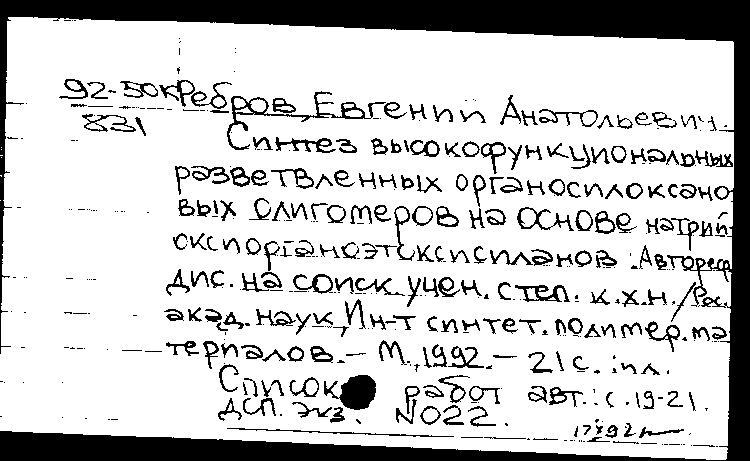 92-50к Ребров, Евгений Анатольевич.
831
Синтез высокофункциональных
разветвленных органосилоксано
вых олигомеров на основе натрий
оксиорганоэтоксисиланов : Автореф
дис. на соиск. учен. степ. к.х.н. / Рос.
акад. наук, Ин-т синтет. полимер. ма
териалов. - М., 1992. - 21 с. : ил.
Список работ авт.: с. 19-21.
ДСП. экз. N022.